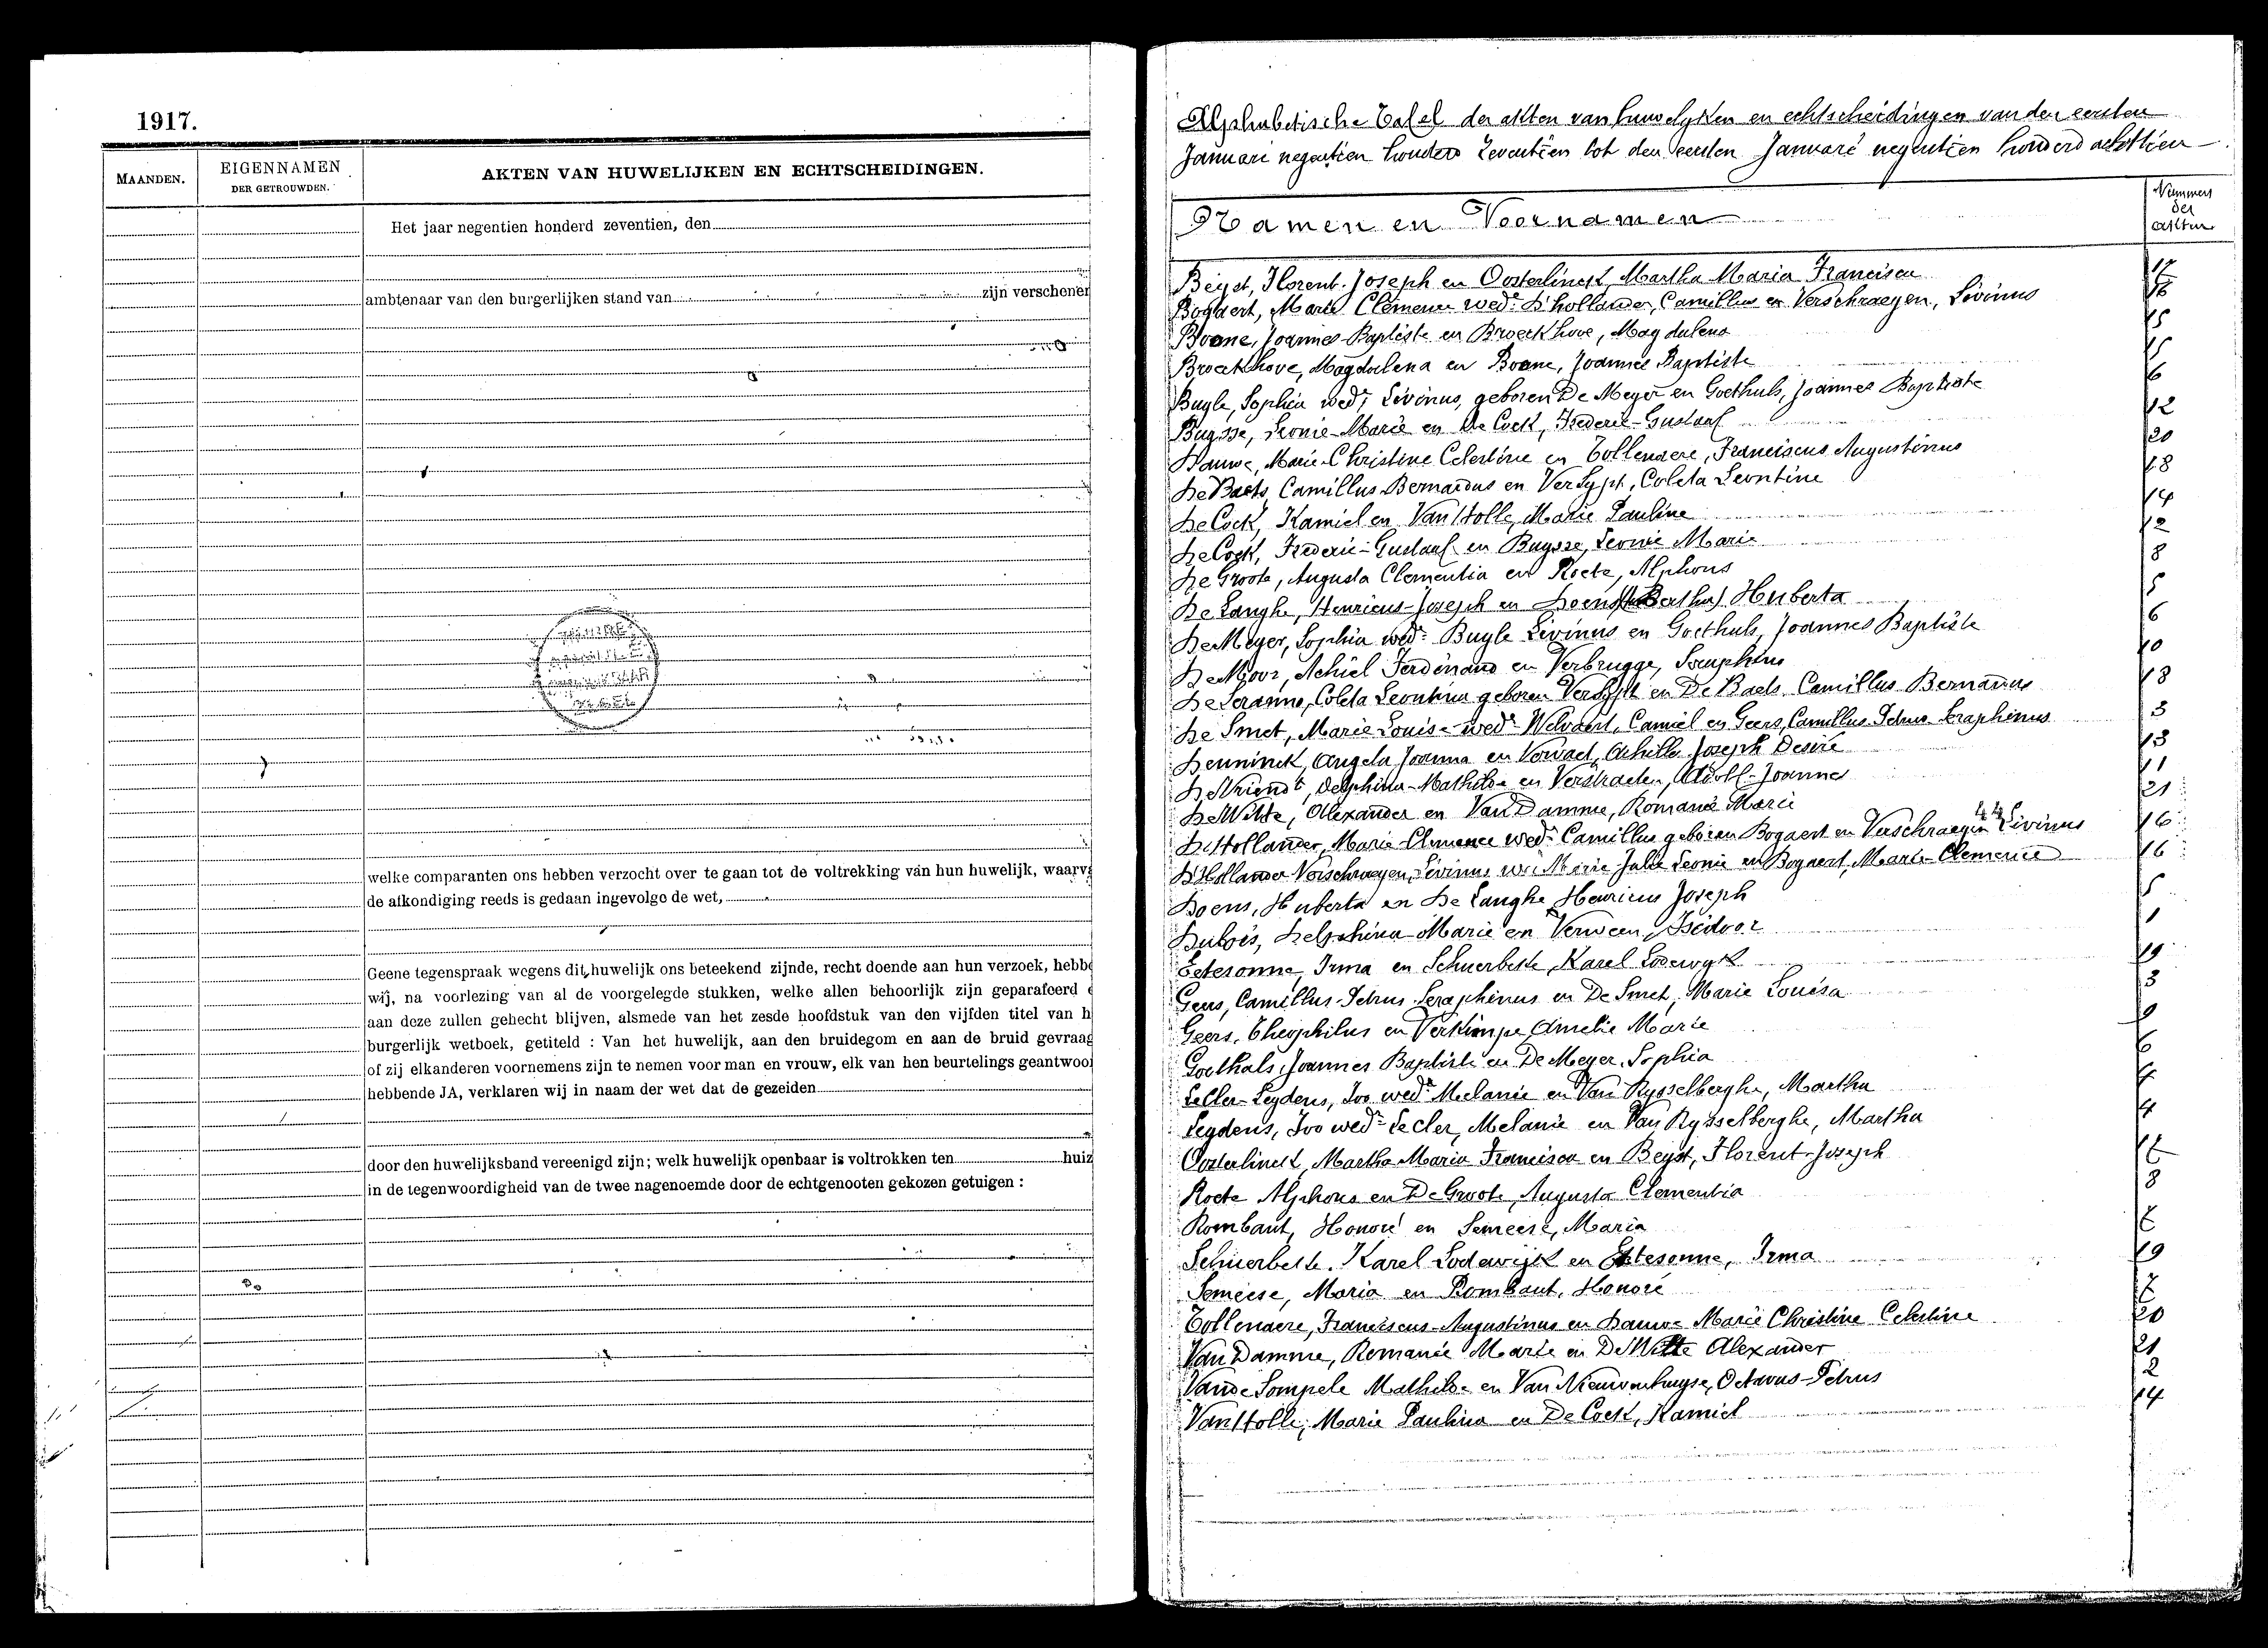 1917.
MAANDEN.
EIGENNAMEN
DER GETROUWDEN.
AKTEN VAN HUWELIJKEN EN ECHTSCHEIDINGEN.
Het jaar negentien honderd zeventien, den
ambtenaar van den burgerlijken stand van zijn verschenen
welke comparanten ons hebben verzocht over te gaan tot de voltrekking van hun huwelijk, waarva
de afkondiging reeds is gedaan ingevolge de wet,
Geene tegenspraak wegens dit huwelijk ons beteekend zijnde, recht doende aan hun verzoek, hebbe
wij, na voorlezing van al de voorgelegde stukken, welke allen behoorlijk zijn geparafeerd e
aan deze zullen gehecht blijven, alsmede van het zesde hoofdstuk van den vijfden titel van h
burgerlijk wetboek, getiteld : Van het huwelijk, aan den bruidegom en aan de bruid gevraag
of zij elkanderen voornemens zijn te nemen voor man en vrouw, elk van hen beurtelings geantwoor
hebbende JA, verklaren wij in naam der wet dat de gezeiden
door den huwelijksband vereenigd zijn; welk huwelijk openbaar is voltrokken ten huiz
in de tegenwoordigheid van de twee nagenoemde door de echtgenooten gekozen getuigen :
Alphabetische Tafel der akten van huwelyken en echtscheidingen van den eersten
Januari negentien honderd zeventien tot den eersten Januari negentien honderd achttien
Namen en Voornamen
Nummers
der
akten
Beyst, Florent-Joseph en Oosterlinck, Martha Maria Francisca 17
Bogaert, Marie Clemence wede D'hollander, Camillus en Verschraegen, Livinus 16
Boone, Joannes-Baptiste en Broeckhove, Magdalena 15
Broeckhove, Magdalena en Boone, Joannes Baptiste 15
Buyle, Sophia wede Livinus, geboren De Meyer en Goethals, Joannes Baptiste 6
Buysse, Leonie-Marie en De Cock, Frederic-Gustaaf 12
Dauwe, Marie-Christine Celestine en Tollenaere, Franciscus Augustinus 20
De Baets, Camillus Bernardus en Versypt, Coleta Leontine 18
De Cock, Kamiel en Van Holle, Marie Pauline 14
De Cock, Frederic-Gustaaf en Buysse, Leonie Marie 12
De Groote, Augusta Clementia en Roete, Alphons 8
De Langhe, Henricus-Joseph en Doens Huberta 5
De Meyer, Sophia wede Buyle Livinus en Goethals, Joannes Baptiste 6
De Moor, Achiel Ferdinand en Verbrugge, 10
De Coleta Leontina geboren Versypt en De Baets Camillus Bernardus 18
De Smet, Marie Louise wede Welvaert, Camiel en Geers, Camillus Petrus Seraphinus 3
Denninck, Angela Joanna en Achille Joseph Desiré 13
De Vriendt, Delphina-Mathilde en Verstraeten, Adolf-Joannes 11
De Witte, Alexander en Van Damme, Romanie Marie 21
D'Hollander, Marie-Clemence wede Camillus geboren Bogaert en Verschraegen Livinus 16
D'Hollander Verschraegen, Livinus wed Marie Julie Leonie en Bogaert, Marie-Clemence 16
Doens, Huberta en De Langhe Henricus Joseph 5
Dubois, Delphina-Marie en Verween, Isidoor 1
Eetesonne, Irma en Schuerbeke, Karel Lodewyk 19
Geers, Camillus-Petrus-Seraphinus en De Smet, Marie Louisa 3
Geers, Theophilus en Verkimpe Amelie Marie 9
Goethals, Joannes Baptiste en De Meyer, Sophia 6
Lecler-Leydens, Ivo wede Melanie en Van Rysselberghe, Martha 4
Leydens, Ivo wede Lecler, Melanie en Van Rysselberghe, Martha 4
Oosterlinck, Martha Maria Francisca en Beyst, Florent-Joseph 17
Roete Alphons en De Groote, Augusta Clementia 8
Rombaut, Honoré en Semeese, Maria 7
Schuerbeke, Karel Lodewijk en Eetesonne, Irma 19
Semeese, Maria en Rombaut, Honoré 7
Tollenaere, Franciscus-Augustinus en Dauwe Marie Christine Celestine 20
Van Damme, Romanie Marie en De Witte Alexander 21
Vande Sompele Mathilde en Van Nieuwenhuyse, Octavus-Petrus 2
Van Holle, Marie Paulina en De Cock, Kamiel 14